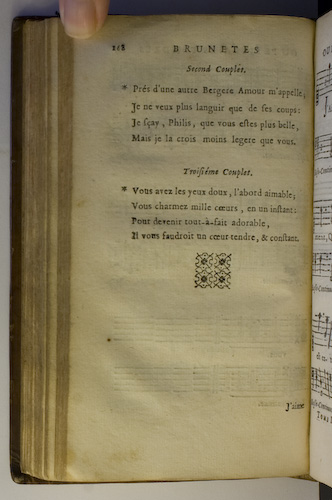 218 BRUNETES
Second Couplet.
* Prés d'une autre Bergere Amour m'appelle,
Je ne veux plus languir que de ses coups:
Je sçay, Philis, que vous estes plus belle,
Mais je la crois moins legere que vous.
Troisiéme Couplet.
* Vous avez les yeux doux, l'abord aimable;
Vous charmez mille cœurs, en un instant:
Pour devenir tout-à-fait adorable,
Il vous faudroit un cœur tendre, & constant.
J'aime